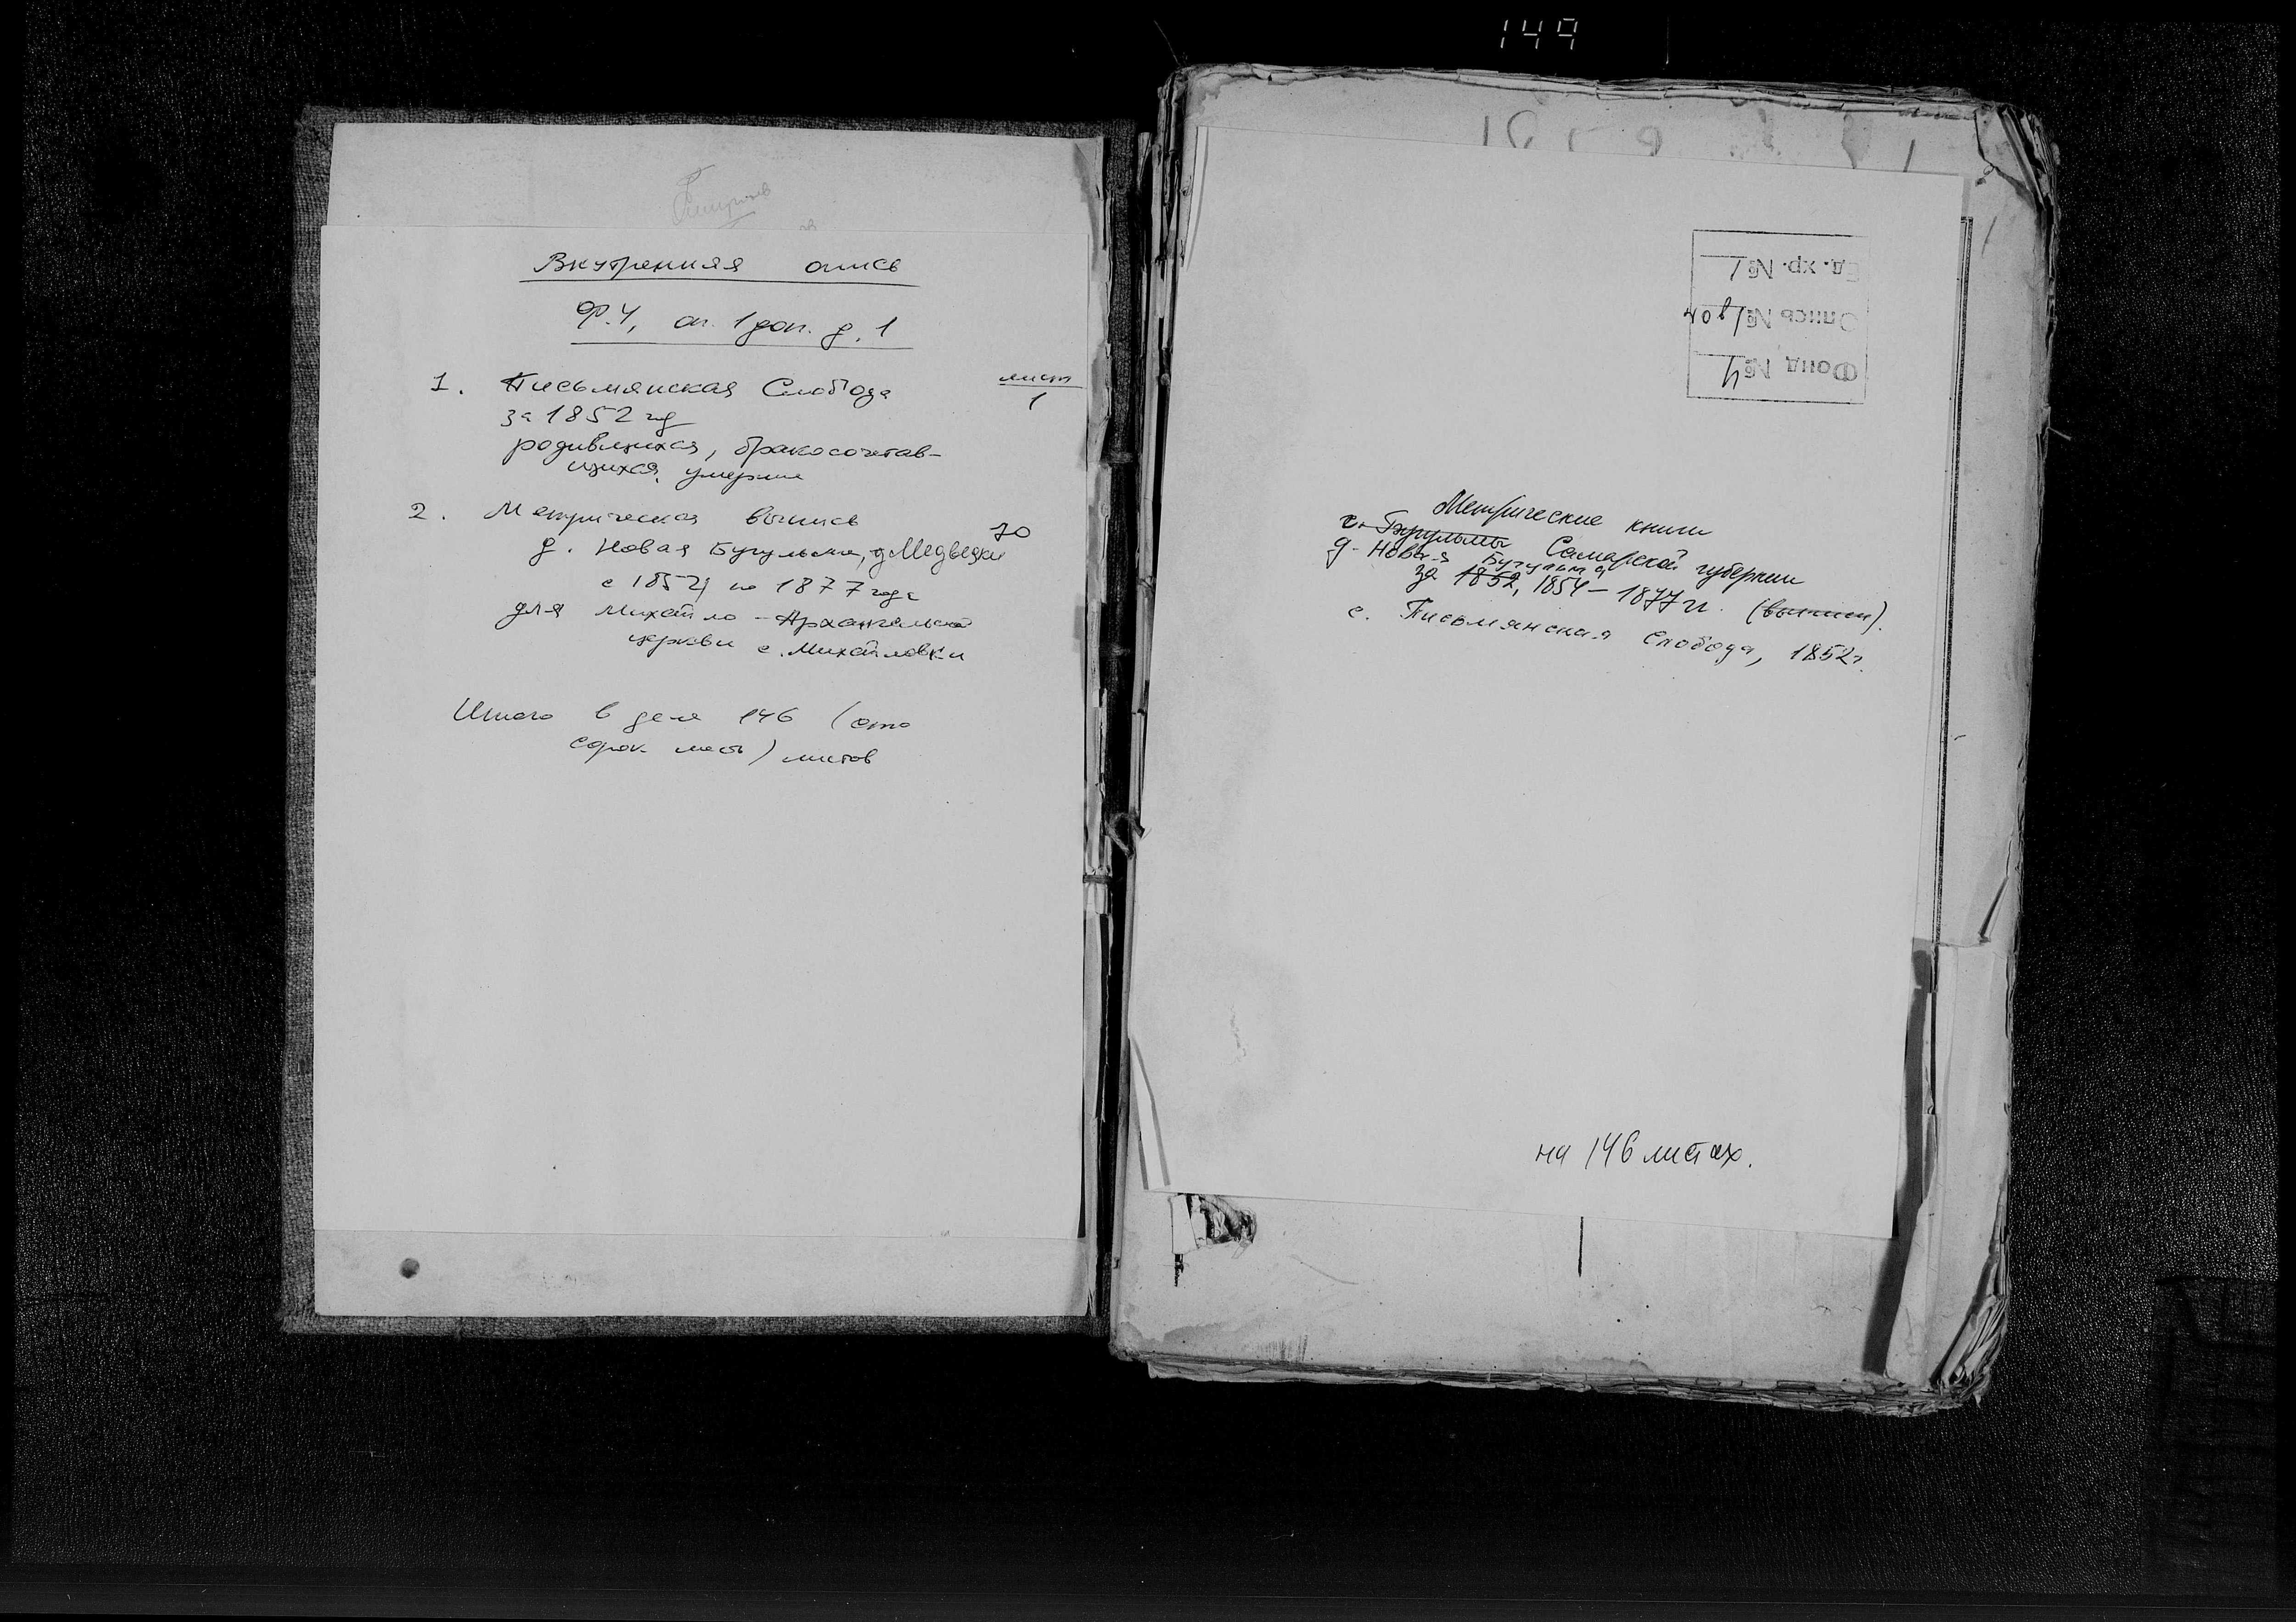 149
Внутренняя опись
Ф. 4, оп. 1 доп. д. 1
лист
1. Письмянская Слобода
1
за 1852 год
родившихся, бракосочетав-
шихся, умерших
2. Метрическая выпись
70
д. Новая Бугульма, д. Медведки
с 1854 по 1877 года
для Михайло-Архангельской
церкви с. Михайловки
Итого в деле 146 (сто
сорок шесть) листов
Ед. хр. № 1
Опись № 1 доп
Фонд № 4
Метрические книги
г. Бугульмы Самарской губернии
д. Новая Бугульма
за 1852, 1854 – 1877 гг. (выписи).
с. Письмянская Слобода, 1852 г.
на 146 листах.